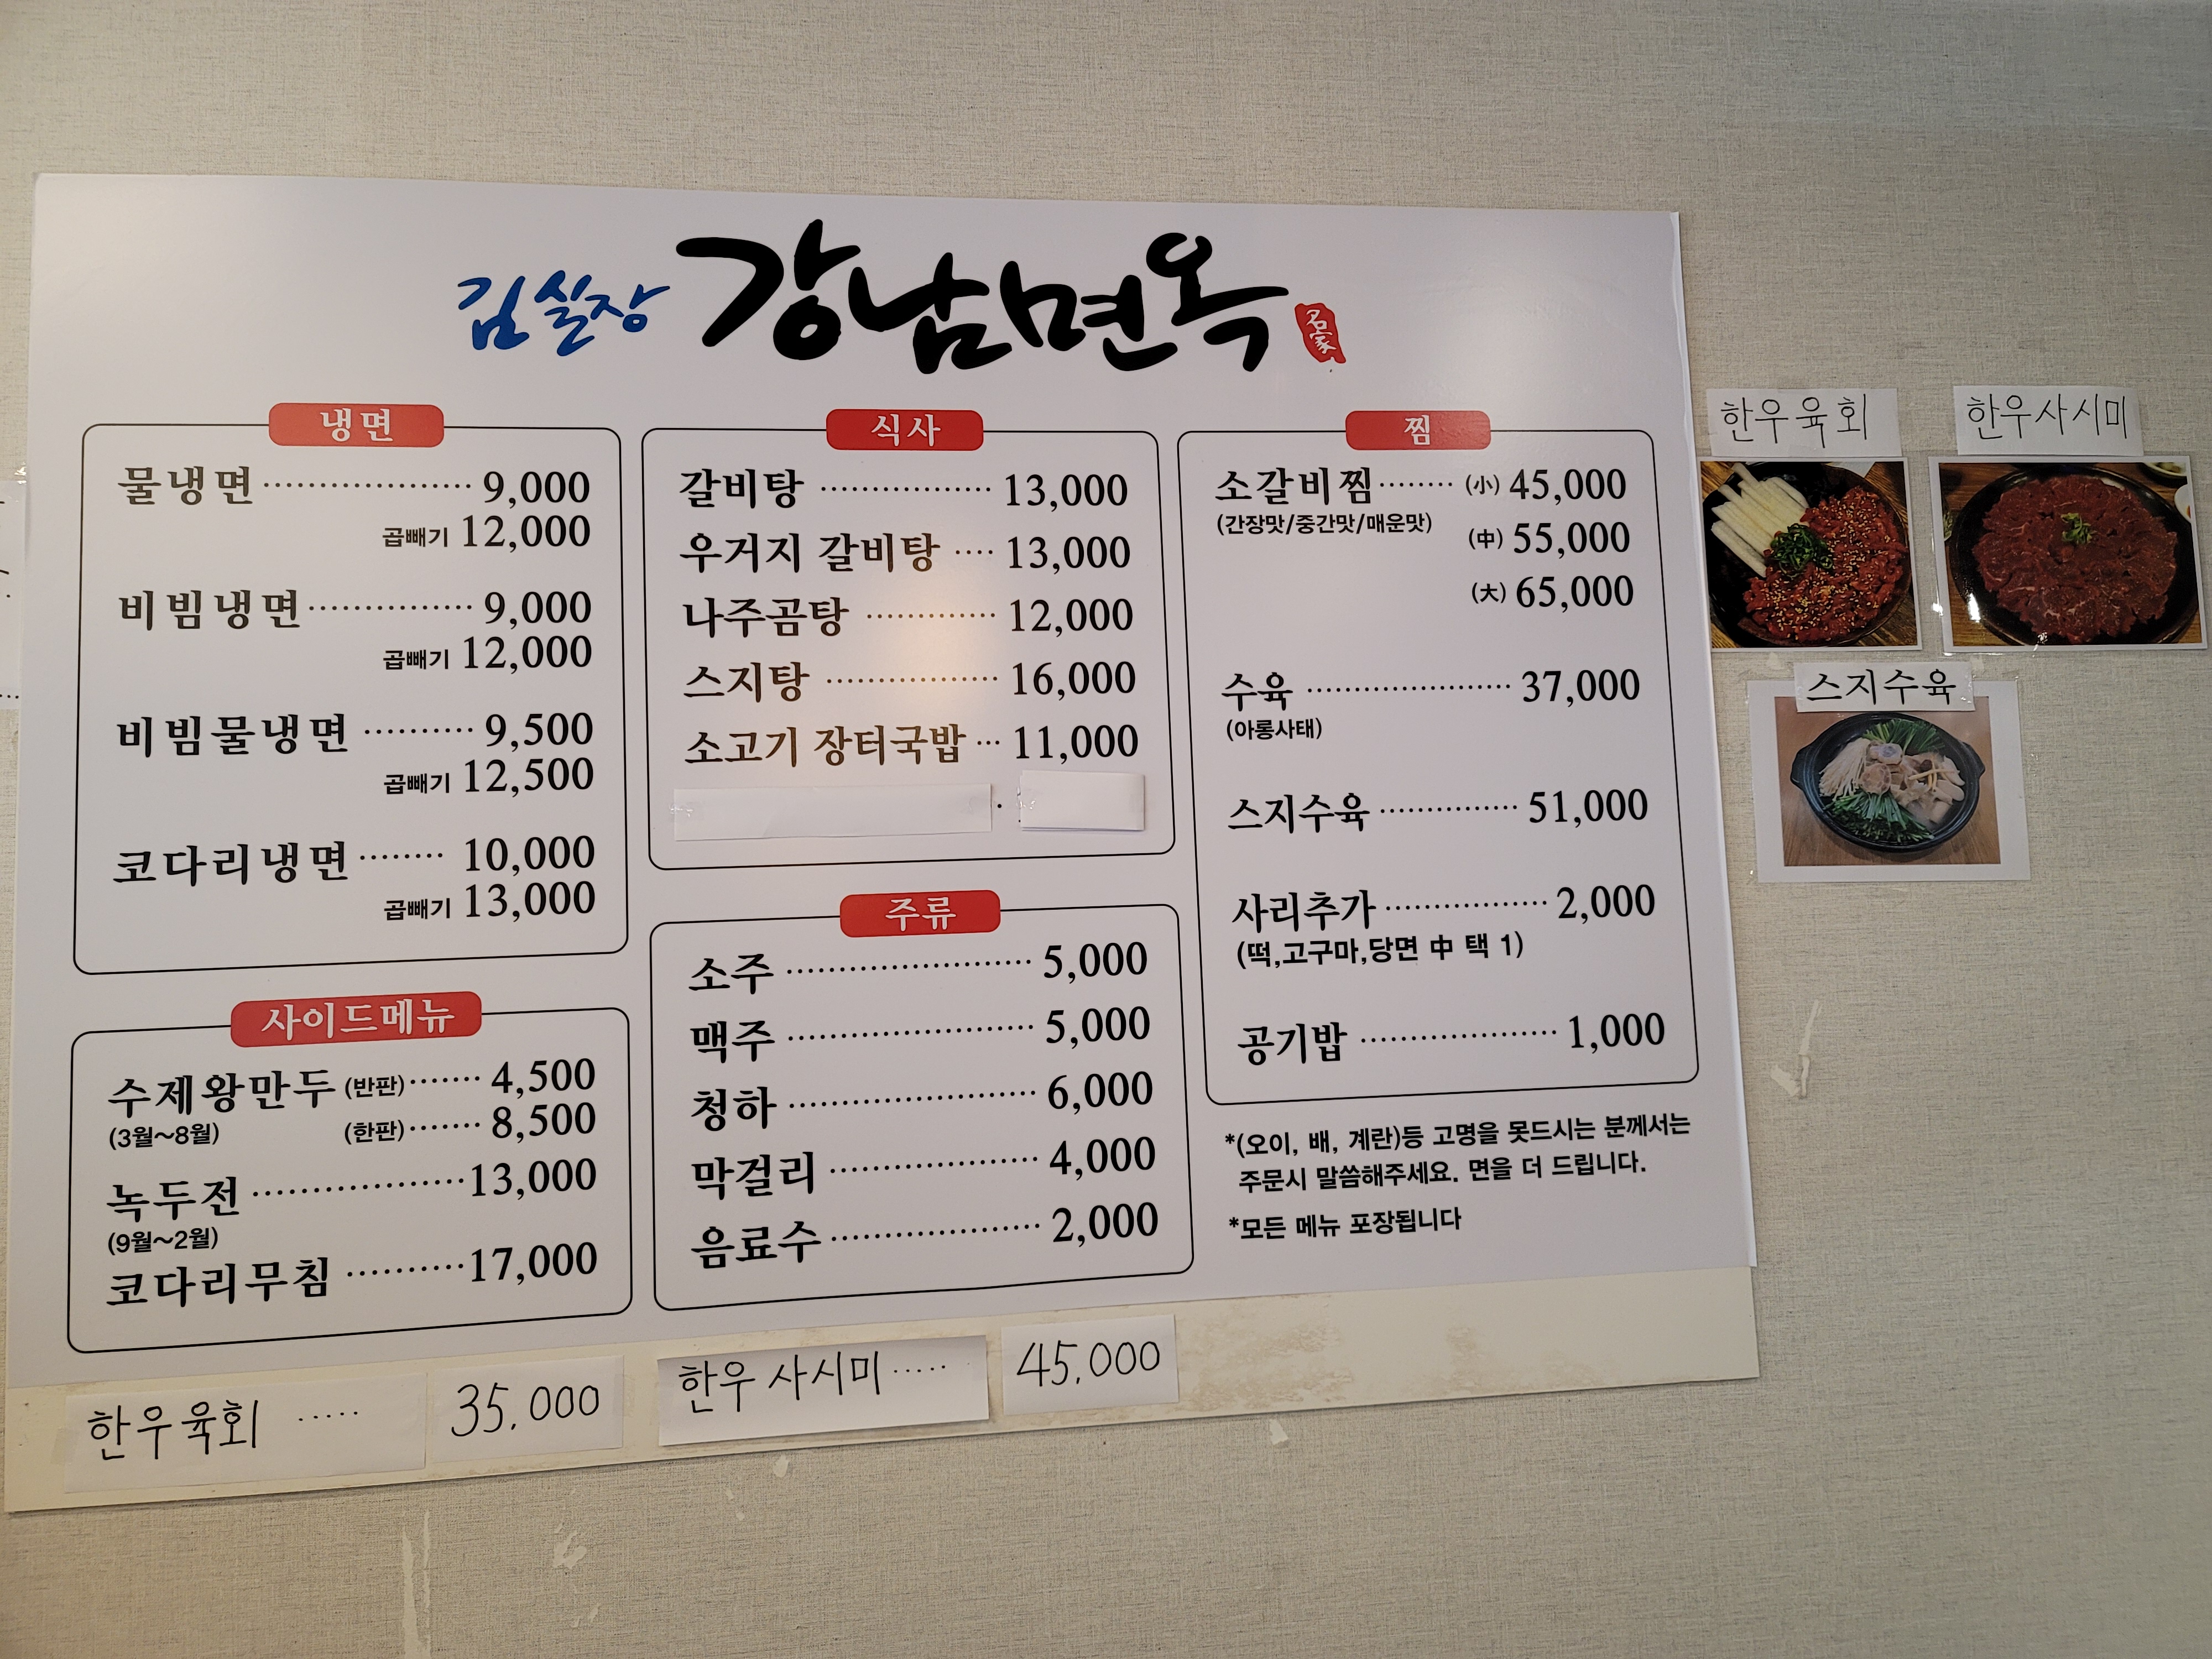 김실장 강남면옥 名家
냉면
물냉면 ··················· 9,000
곱빼기 12,000
비빔냉면 ··············· 9,000
곱빼기 12,000
비빔물냉면 ·········· 9,500
곱빼기 12,500
코다리냉면 ········ 10,000
곱빼기 13,000
사이드메뉴
수제왕만두 (반판) ······· 4,500
(3월~8월) (한판) ······· 8,500
녹두전 ·················· 13,000
(9월~2월)
코다리무침 ·········· 17,000
식사
갈비탕 ················· 13,000
우거지 갈비탕 ···· 13,000
나주곰탕 ············· 12,000
스지탕 ················· 16,000
소고기 장터국밥 ··· 11,000
주류
소주 ························ 5,000
맥주 ························ 5,000
청하 ························ 6,000
막걸리 ···················· 4,000
음료수 ···················· 2,000
찜
소갈비찜 ········ (小) 45,000
(간장맛/중간맛/매운맛) (中) 55,000
(大) 65,000
수육 ······················ 37,000
(아롱사태)
스지수육 ··············· 51,000
사리추가 ················· 2,000
(떡,고구마,당면 中 택 1)
공기밥 ···················· 1,000
*(오이, 배, 계란)등 고명을 못드시는 분께서는
주문시 말씀해주세요. 면을 더 드립니다.
*모든 메뉴 포장됩니다
한우육회 ····· 35,000
한우 사시미 ····· 45,000
한우육회
한우사시미
스지수육